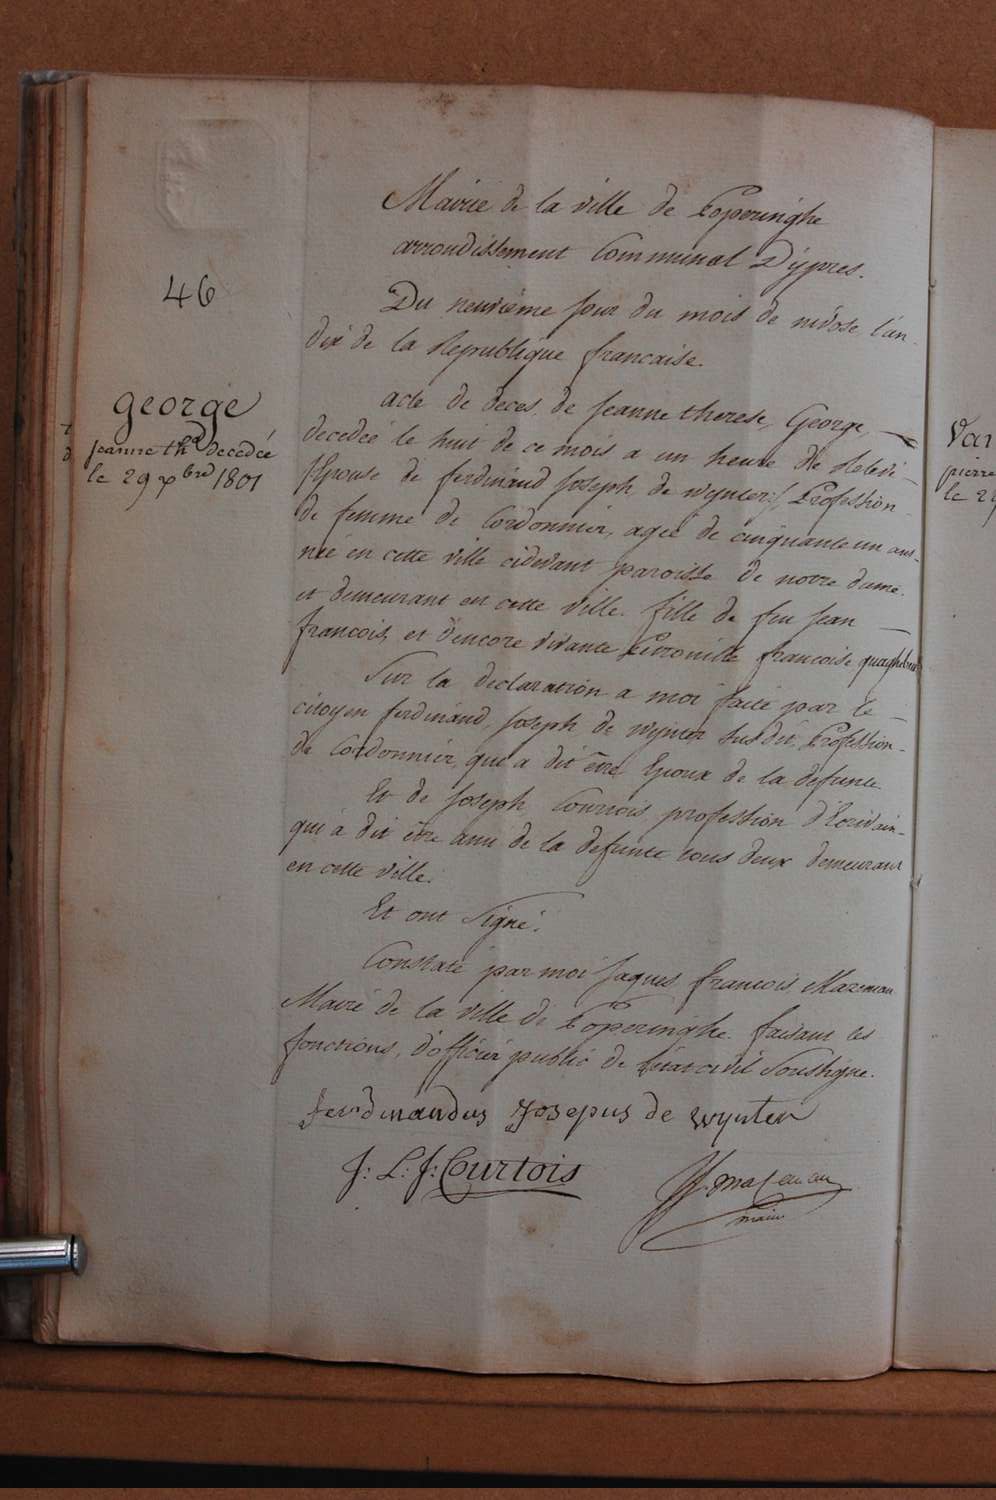 46
george
jeanne th.e decedée
le 29 xbre 1801
Mairie de la ville de Poperinghe
arrondissement Communal D'ypres.
Du neuvième jour du mois de nivose l'an
dix de la Republique francaise.
acte de deces de jeanne therese George
decedée le huit de ce mois a un heure de Relevé
Epouse de ferdinand Joseph de wynter, Profession
de femme de Cordonnier, agée de cinquante un ans
née en cette ville cidevant paroisse de notre dame
et demeurant en cette ville. fille de feu Jean
francois, et d'encore vivante Petronille francoise quaghebeur
Sur la declaration a moi faite par le
citoyen ferdinand, Joseph de wynter susdit, Profession
de Cordonnier, qui a dit être Epoux de la defunte
Et de Joseph Courtois profession d'Ecrivain
qui a dit être ami de la defunte tous deux demeurant
en cette ville.
Et ont Signé.
Constaté par moi Jaques francois Mazeman
Maire de la ville de Poperinghe faisant les
fonctions, d'officier public de l'état civil Soussigne.
ferdinandus Josepus de wynter
J: L: J: Courtois
mazeman
maire
Van
pierre
le 29